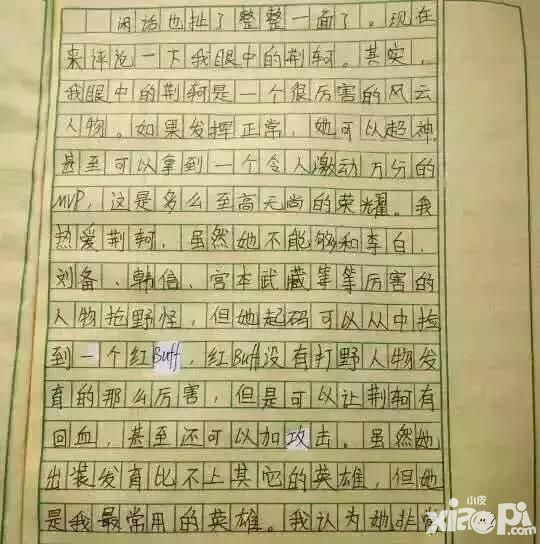 闲话也扯了整整一面了。现在
来评论一下我眼中的荆轲。其实，
我眼中的荆轲是一个很厉害的风云
人物。如果发挥正常，她可以超神，
甚至可以拿到一个令人激动万分的
MVP，这是多么至高无尚的荣耀。我
热爱荆轲，虽然她不能够和李白、
刘备、韩信、宫本武藏等等厉害的
人物抢野怪，但她起码可以从中捡
到一个红Buff，红Buff没有打野人物发
育的那么厉害，但是可以让荆轲有
回血，甚至还可以加攻击。虽然她
出装发育比不上其它的英雄，但她
是我最常用的英雄。我认为她非常
小皮
xiaopi.com